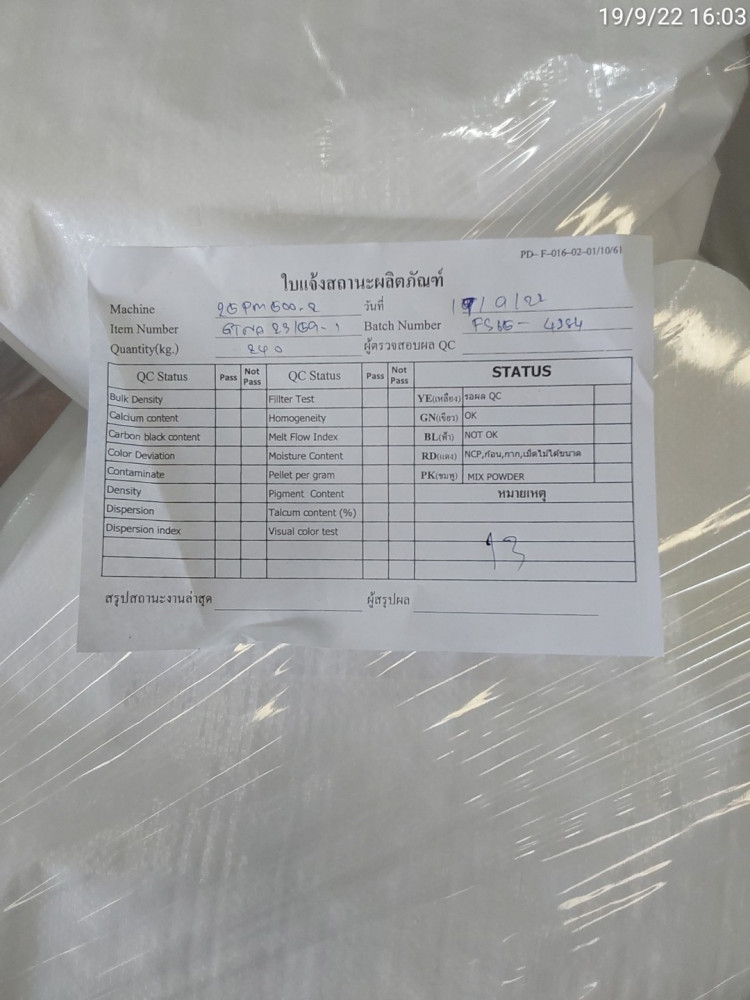 19/9/22 16:03
PD- F-016-02-01/10/61
ใบแจ้งสถานะผลิตภัณฑ์
Machine วันที่ /9/22
Item Number Batch Number
Quantity(kg.) 240 ผู้ตรวจสอบผล QC
QC Status Pass Not Pass QC Status Pass Not Pass STATUS
Bulk Density Fillter Test YE(เหลือง) รอผล QC
Calcium content Homogeneity GN(เขียว) OK
Carbon black content Melt Flow Index BL(ฟ้า) NOT OK
Color Deviation Moisture Content RD(แดง) NCP,ก้อน,กาก,เม็ดไม่ได้ขนาด
Contaminate Pellet per gram PK(ชมพู) MIX POWDER
Density Pigment Content หมายเหตุ
Dispersion Talcum content (%)
Dispersion index Visual color test
13
สรุปสถานะงานล่าสุด ผู้สรุปผล